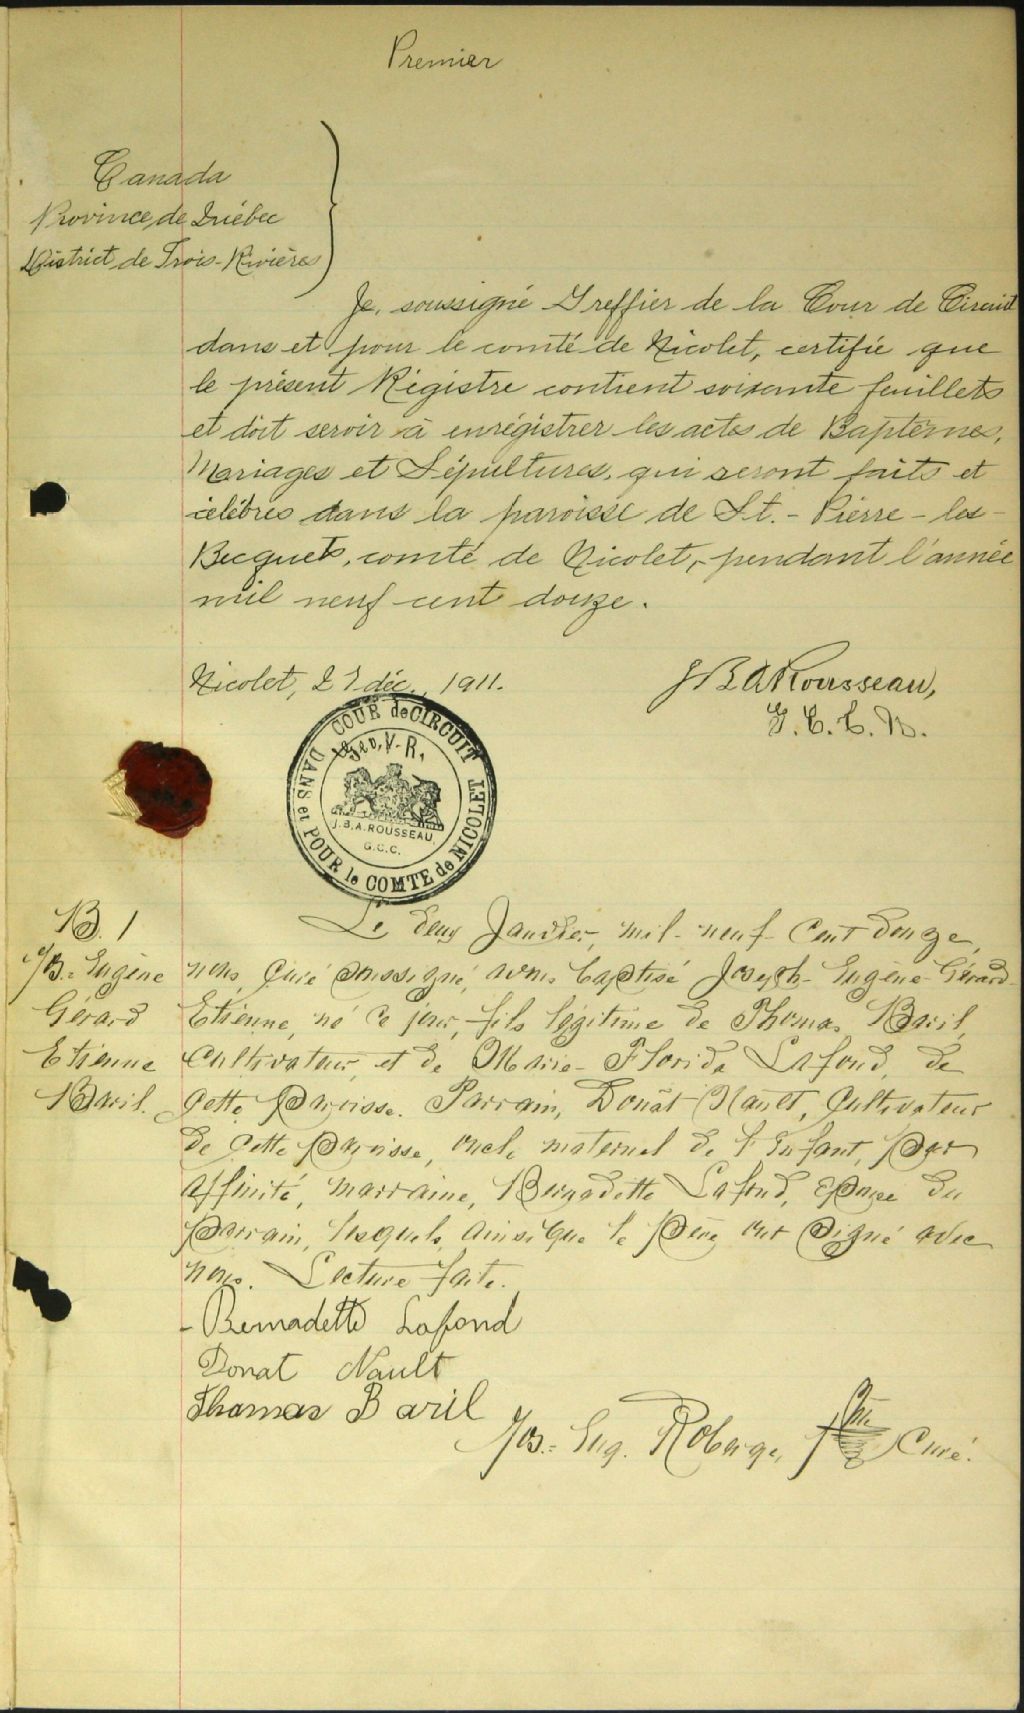 Premier
Canada
Province de Québec
District de Trois-Rivières
Je, soussigné Greffier de la Cour de Circuit
dans et pour le comté de Nicolet, certifie que
le présent Régistre contient soixante feuillets
et doit servir à enrégistrer les actes de Baptêmes,
Mariages et Sépultures, qui seront faits et
célébrés dans la paroisse de St.-Pierre-les-
Becquets, comté de Nicolet, pendant l'année
mil neuf cent douze.
Nicolet, 27 déc., 1911.
JBARousseau,
G. C. C. N.
COUR de CIRCUIT
DANS et POUR le COMTE de NICOLET
Geo, V. R,
J.B.A. ROUSSEAU,
G.C.C.
B. 1
Jos.= Eugène
Gérard
Etienne
Baril.
Le deux Janvier, mil-neuf-Cent douze,
nous, Curé soussigné, avons baptisé Joseph-Eugène-Gérard-
Etienne, né ce jour, fils légitime de Thomas Baril,
Cultivateur, et de Marie-Florida Lafond, de
cette Paroisse. Parrain, Donat Nault, Cultivateur
de cette Paroisse, oncle maternel de l'enfant, par
affinité, marraine, Bernadette Lafond, épouse du
Parrain, lesquels, ainsi que le père ont signé avec
nous. Lecture faite.
- Bernadette Lafond
Donat Nault
Thomas Baril
Jos.= Eug. Roberge, Ptre Curé.